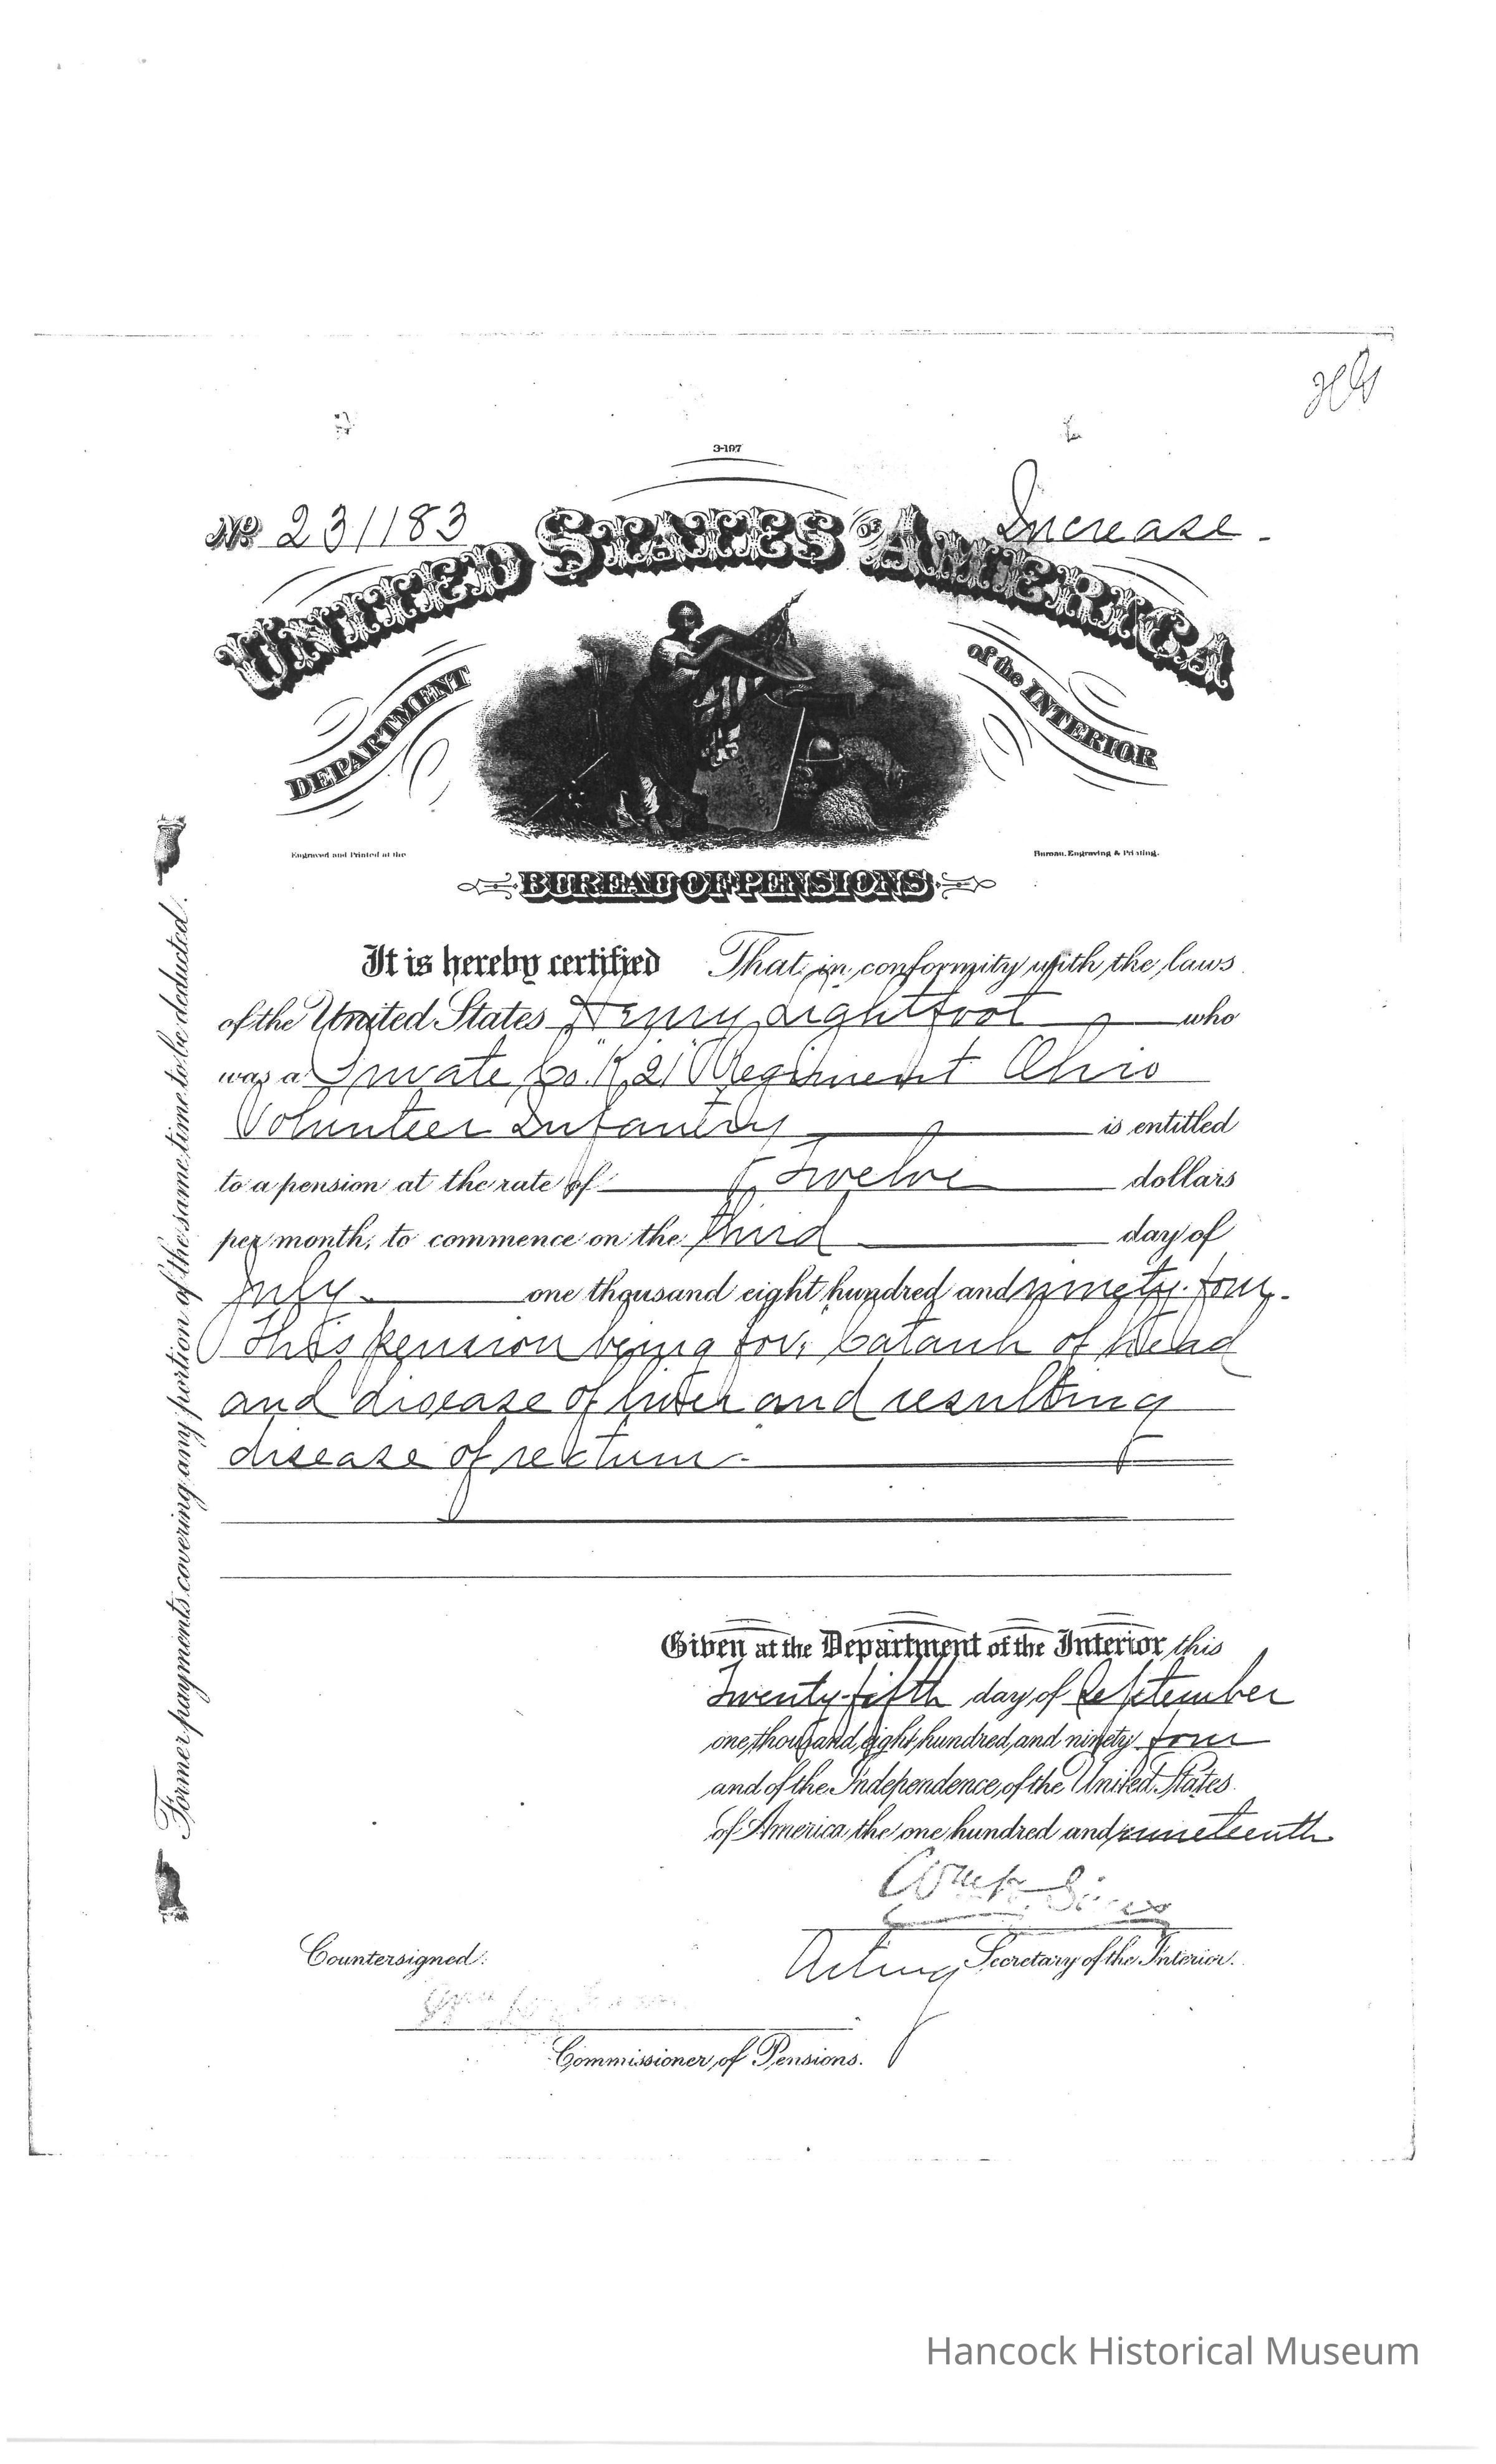 3-197
No 231183
Increase
UNITED STATES OF AMERICA
DEPARTMENT of the INTERIOR
Engraved and Printed at the
Bureau, Engraving & Printing.
BUREAU OF PENSIONS
It is hereby certified That in conformity with the laws
of the United States Henry Lightfoot who
was a Private Co. "K" 21" Regiment Ohio
Volunteer Infantry is entitled
to a pension at the rate of Twelve dollars
per month, to commence on the third day of
July one thousand eight hundred and ninety-four.
This pension being for: Catarrh of Head
and disease of liver and resulting
disease of rectum.
Former payments covering any portion of the same time to be deducted.
Given at the Department of the Interior this
Twenty-fifth day of September
one thousand eight hundred and ninety four
and of the Independence of the United States
of America the one hundred and nineteenth
Acting Secretary of the Interior.
Countersigned:
Commissioner of Pensions.
Hancock Historical Museum